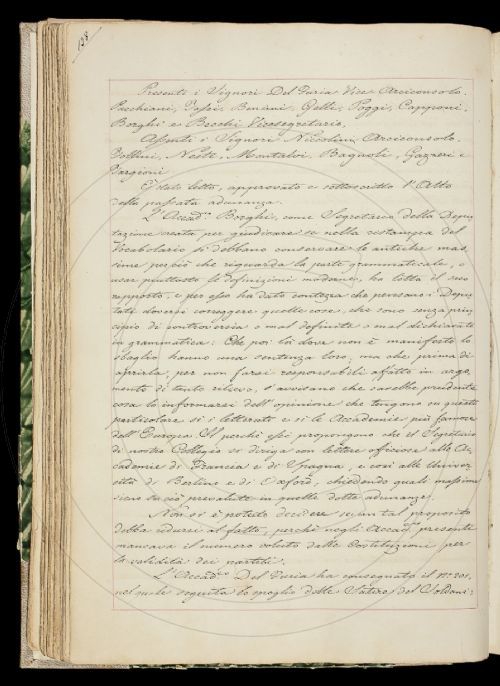 128
Presenti i Signori Del Furia Vice Arciconsolo,
Pacchiani, Zassi, Bencini, Gelli, Poggi, Capponi,
Borghi e Becchi Vicesegretario.
Assenti i Signori Niccolini Arciconsolo,
Follini, Nesti, Montalvi, Bagnoli, Gazzeri e
Targioni.
È stato letto, approvato e sottoscritto l'Atto
della passata adunanza.
L'Accad.co Borghi, come Segretario della Depu-
tazione creata per giudicare se nella ristampa del
Vocabolario si debbano conservare le antiche mas-
sime perciò che riguarda la parte grammaticale, o
usar piuttosto le definizioni moderne, ha letto il suo
rapporto, e per esso ha dato contezza che pensano i Depu-
tati doversi correggere quelle cose, che sono senza prin-
cipio di controversia o mal definite o mal dichiarate
in grammatica: Che poi là dove non è manifesto lo
sbaglio hanno una sentenza loro, ma che prima di
aprirla, per non farsi responsabili affatto in argo-
mento di tanto rilievo, s'avvisano che sarebbe prudente
cosa lo informarsi dell'opinione che tengono su questo
particolare sì i letterati e sì le Accademie più famose
dell'Europa. Il perchè essi propongono che il Segretario
di nostro Collegio si diriga con lettere officiose alle Ac-
cademie di Francia e di Spagna, e così alle Univer-
sità di Berlino e di Oxford, chiedendo quali massime
sieno su ciò prevalute in quelle dotte adunanze.
Non si è potuto decidere se un tal proposito
debba ridursi al fatto, perchè negli Accad.ci presenti
mancava il numero voluto dalle Costituzioni per
la validità dei partiti.
L'Accad.co Del Furia ha consegnato il n.o 201.
nel quale seguita lo spoglio delle Satire del Soldani: